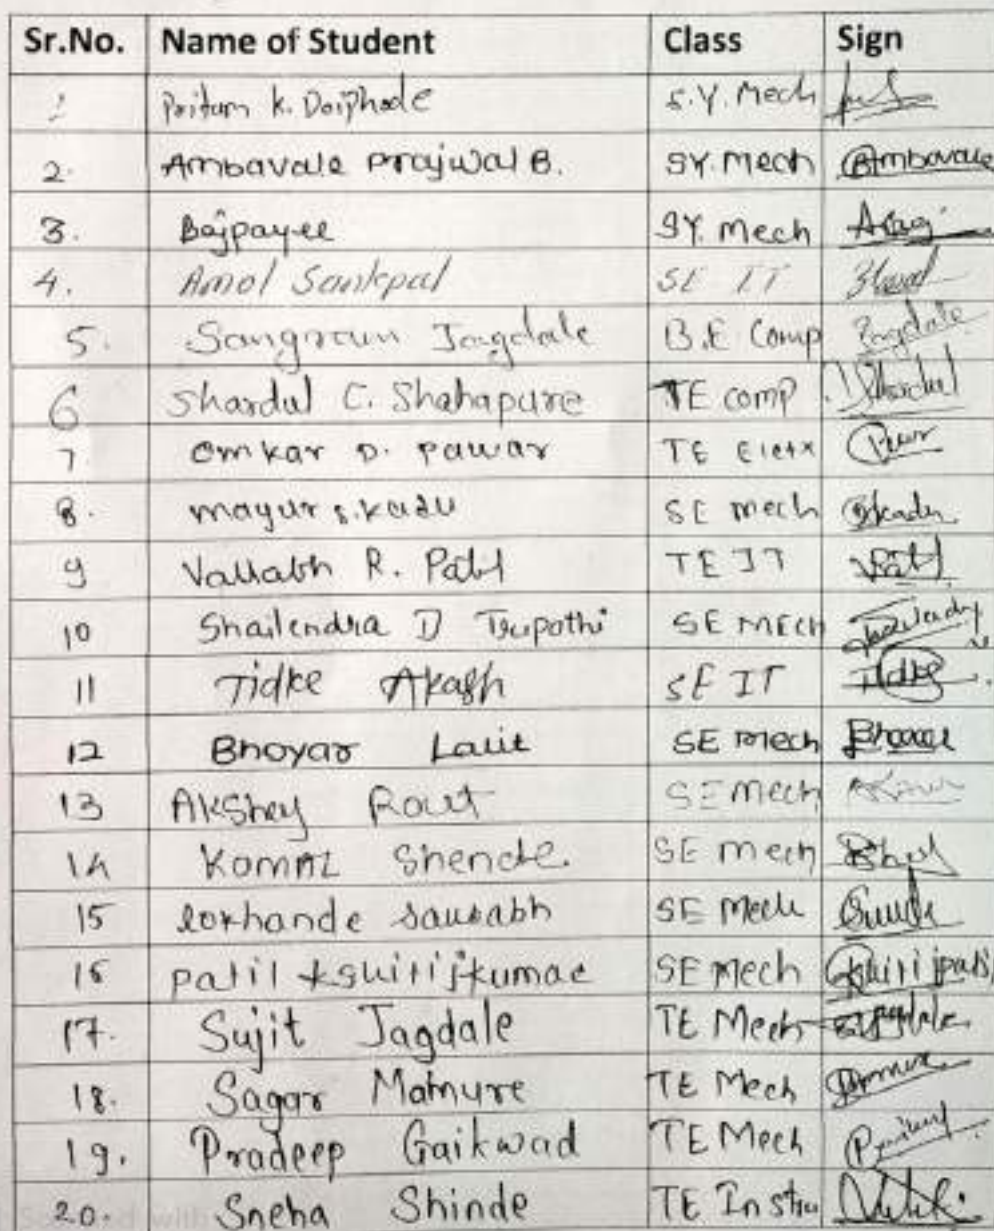 Sr.No. Name of Student Class Sign
1 Pritam K. Doiphode S.Y. Mech
2. Ambavale Prajwal B. SY. Mech Ambavale
3. Bajpayee SY. Mech
4. Amol Sankpal SE IT
5. Sangram Jagdale B.E Comp Jagdale
6 Shardul C. Shahapure TE comp Shardul
7. Omkar D. Pawar TE Eletx
8. mayur s. kadu SE mech Skadu
9 Vallabh R. Patil TE IT
10 Shailendra D Tripathi SE MECH
11 Tidke Akash SE IT Tidke
12 Bhoyar Lalit SE mech
13 Akshay Rout SE Mech
14 KOMAL Shende SE mech
15 lokhande saurabh SE Mech
16 patil kshitijkumar SE Mech
17. Sujit Jagdale TE Mech
18. Sagar Mamure TE Mech
19. Pradeep Gaikwad TE Mech
20. Sneha Shinde TE Instru